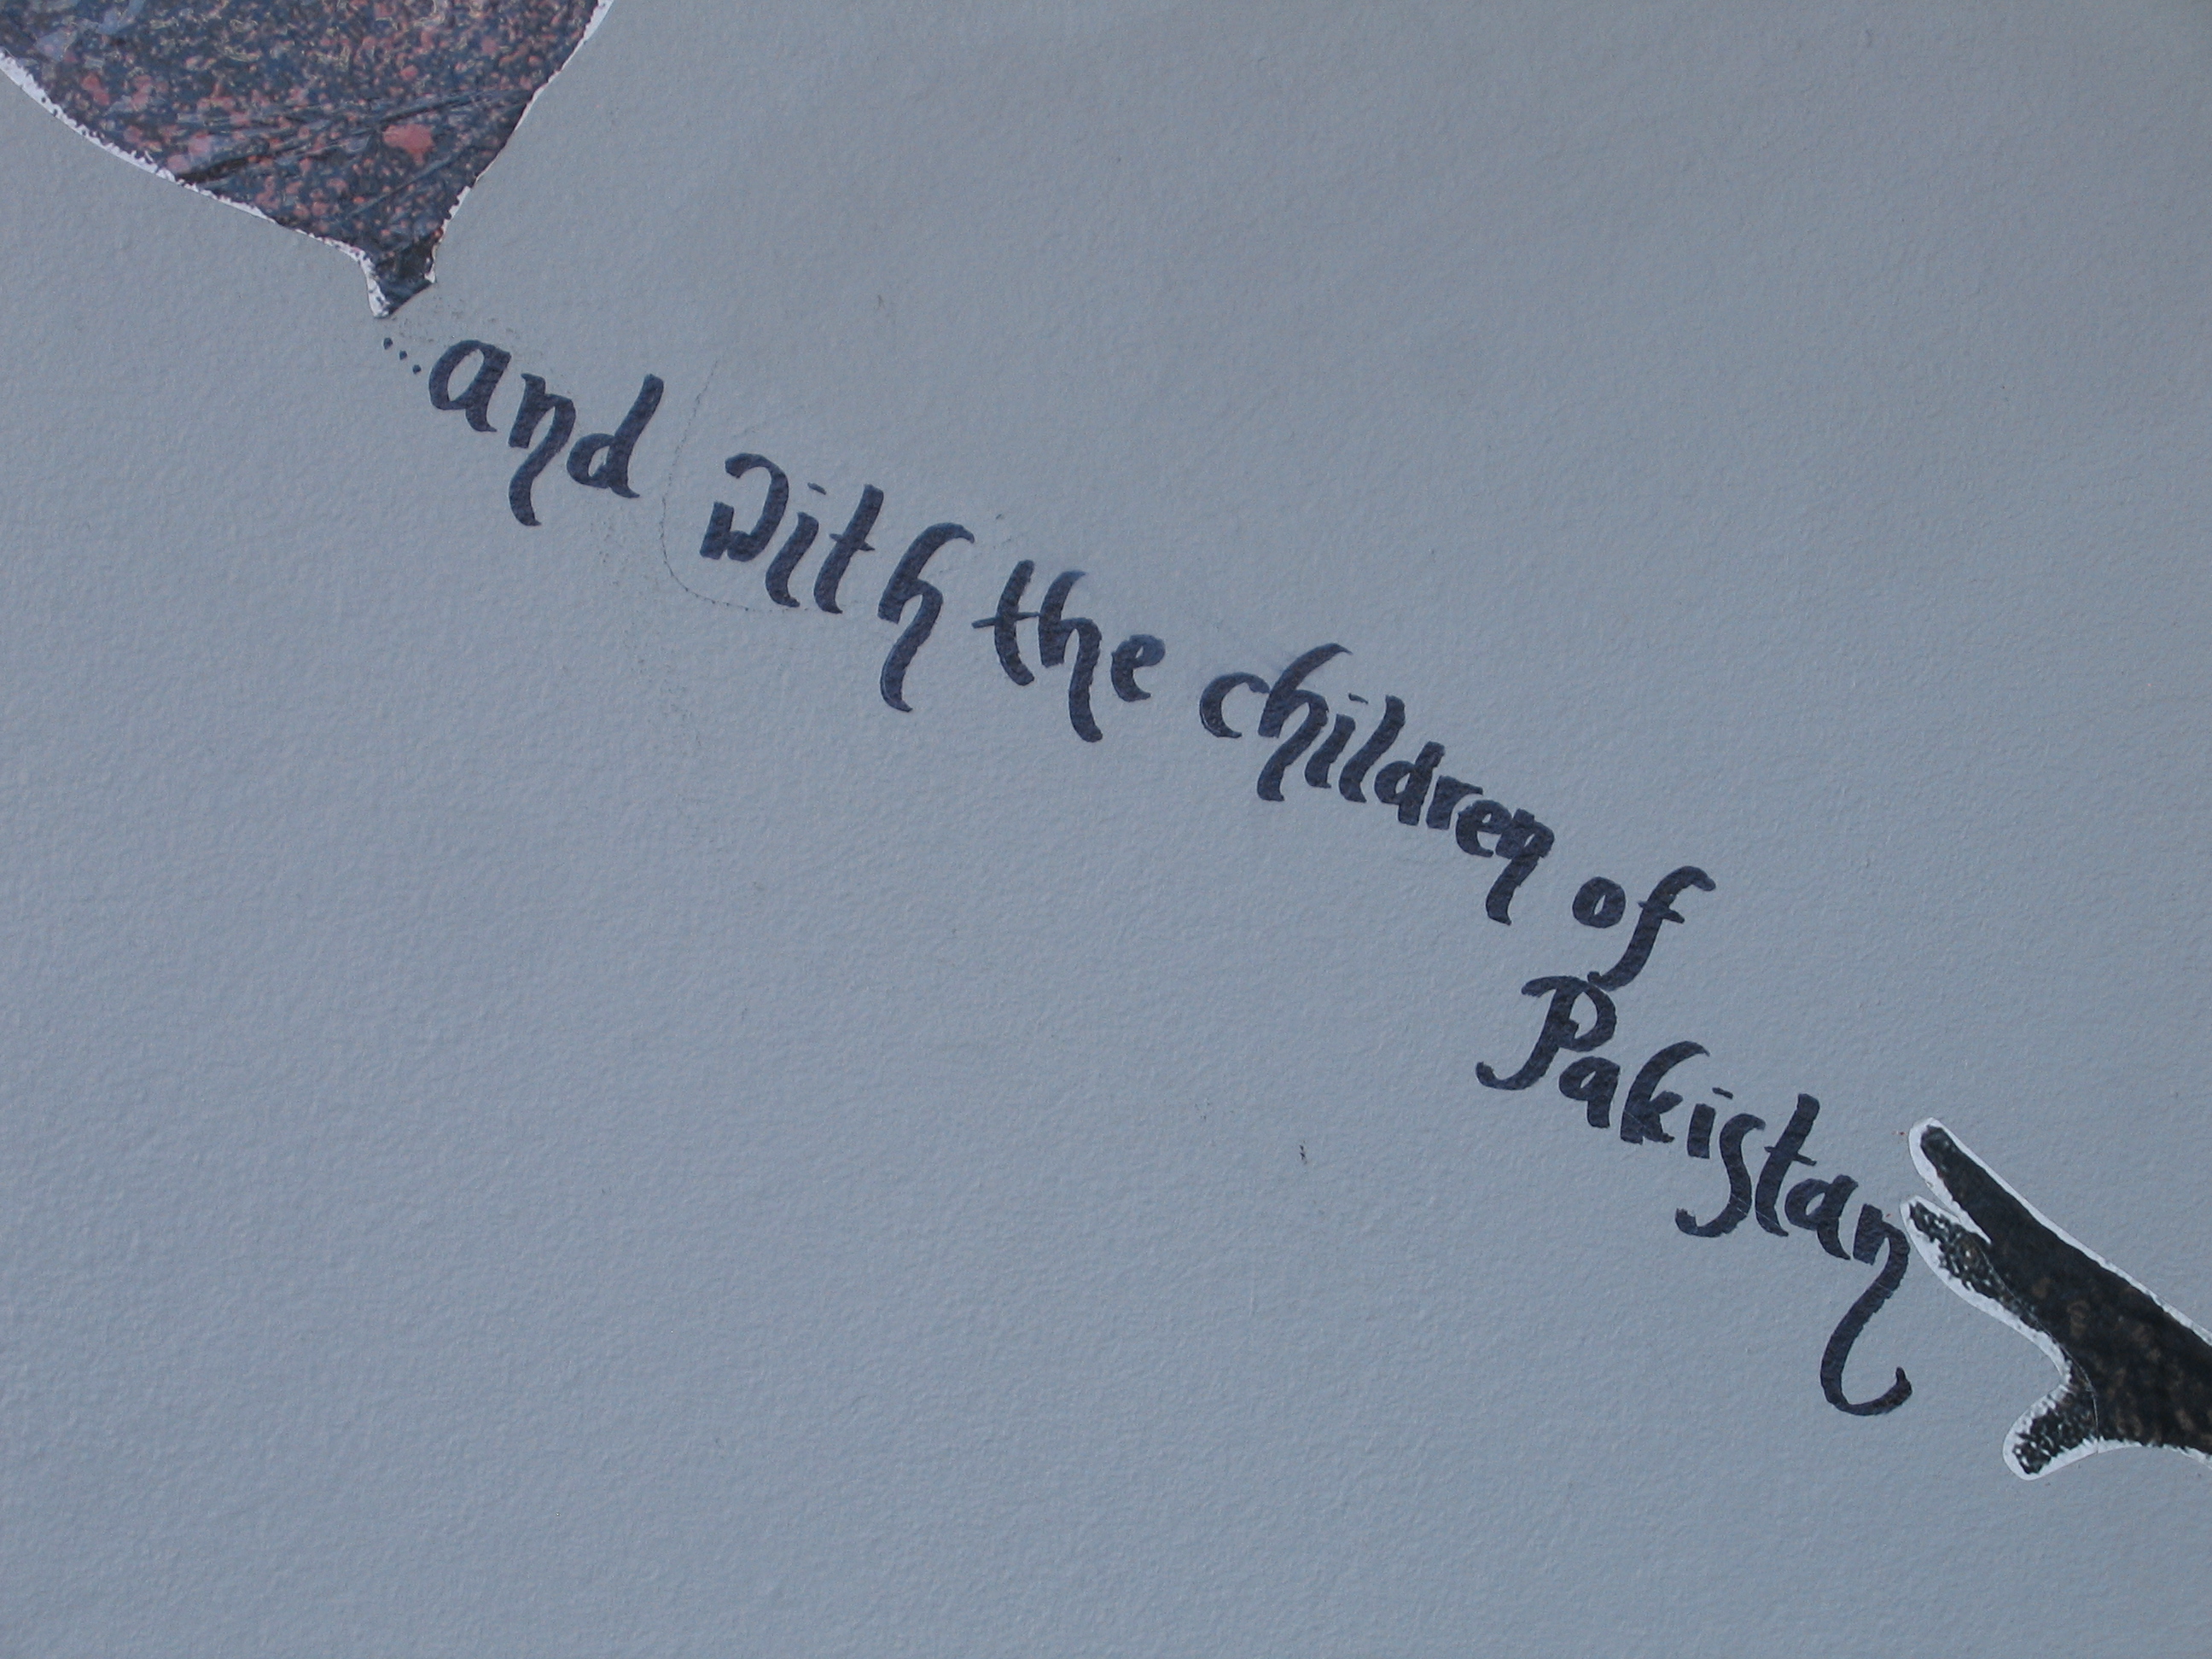 ...and with the children of
Pakistan